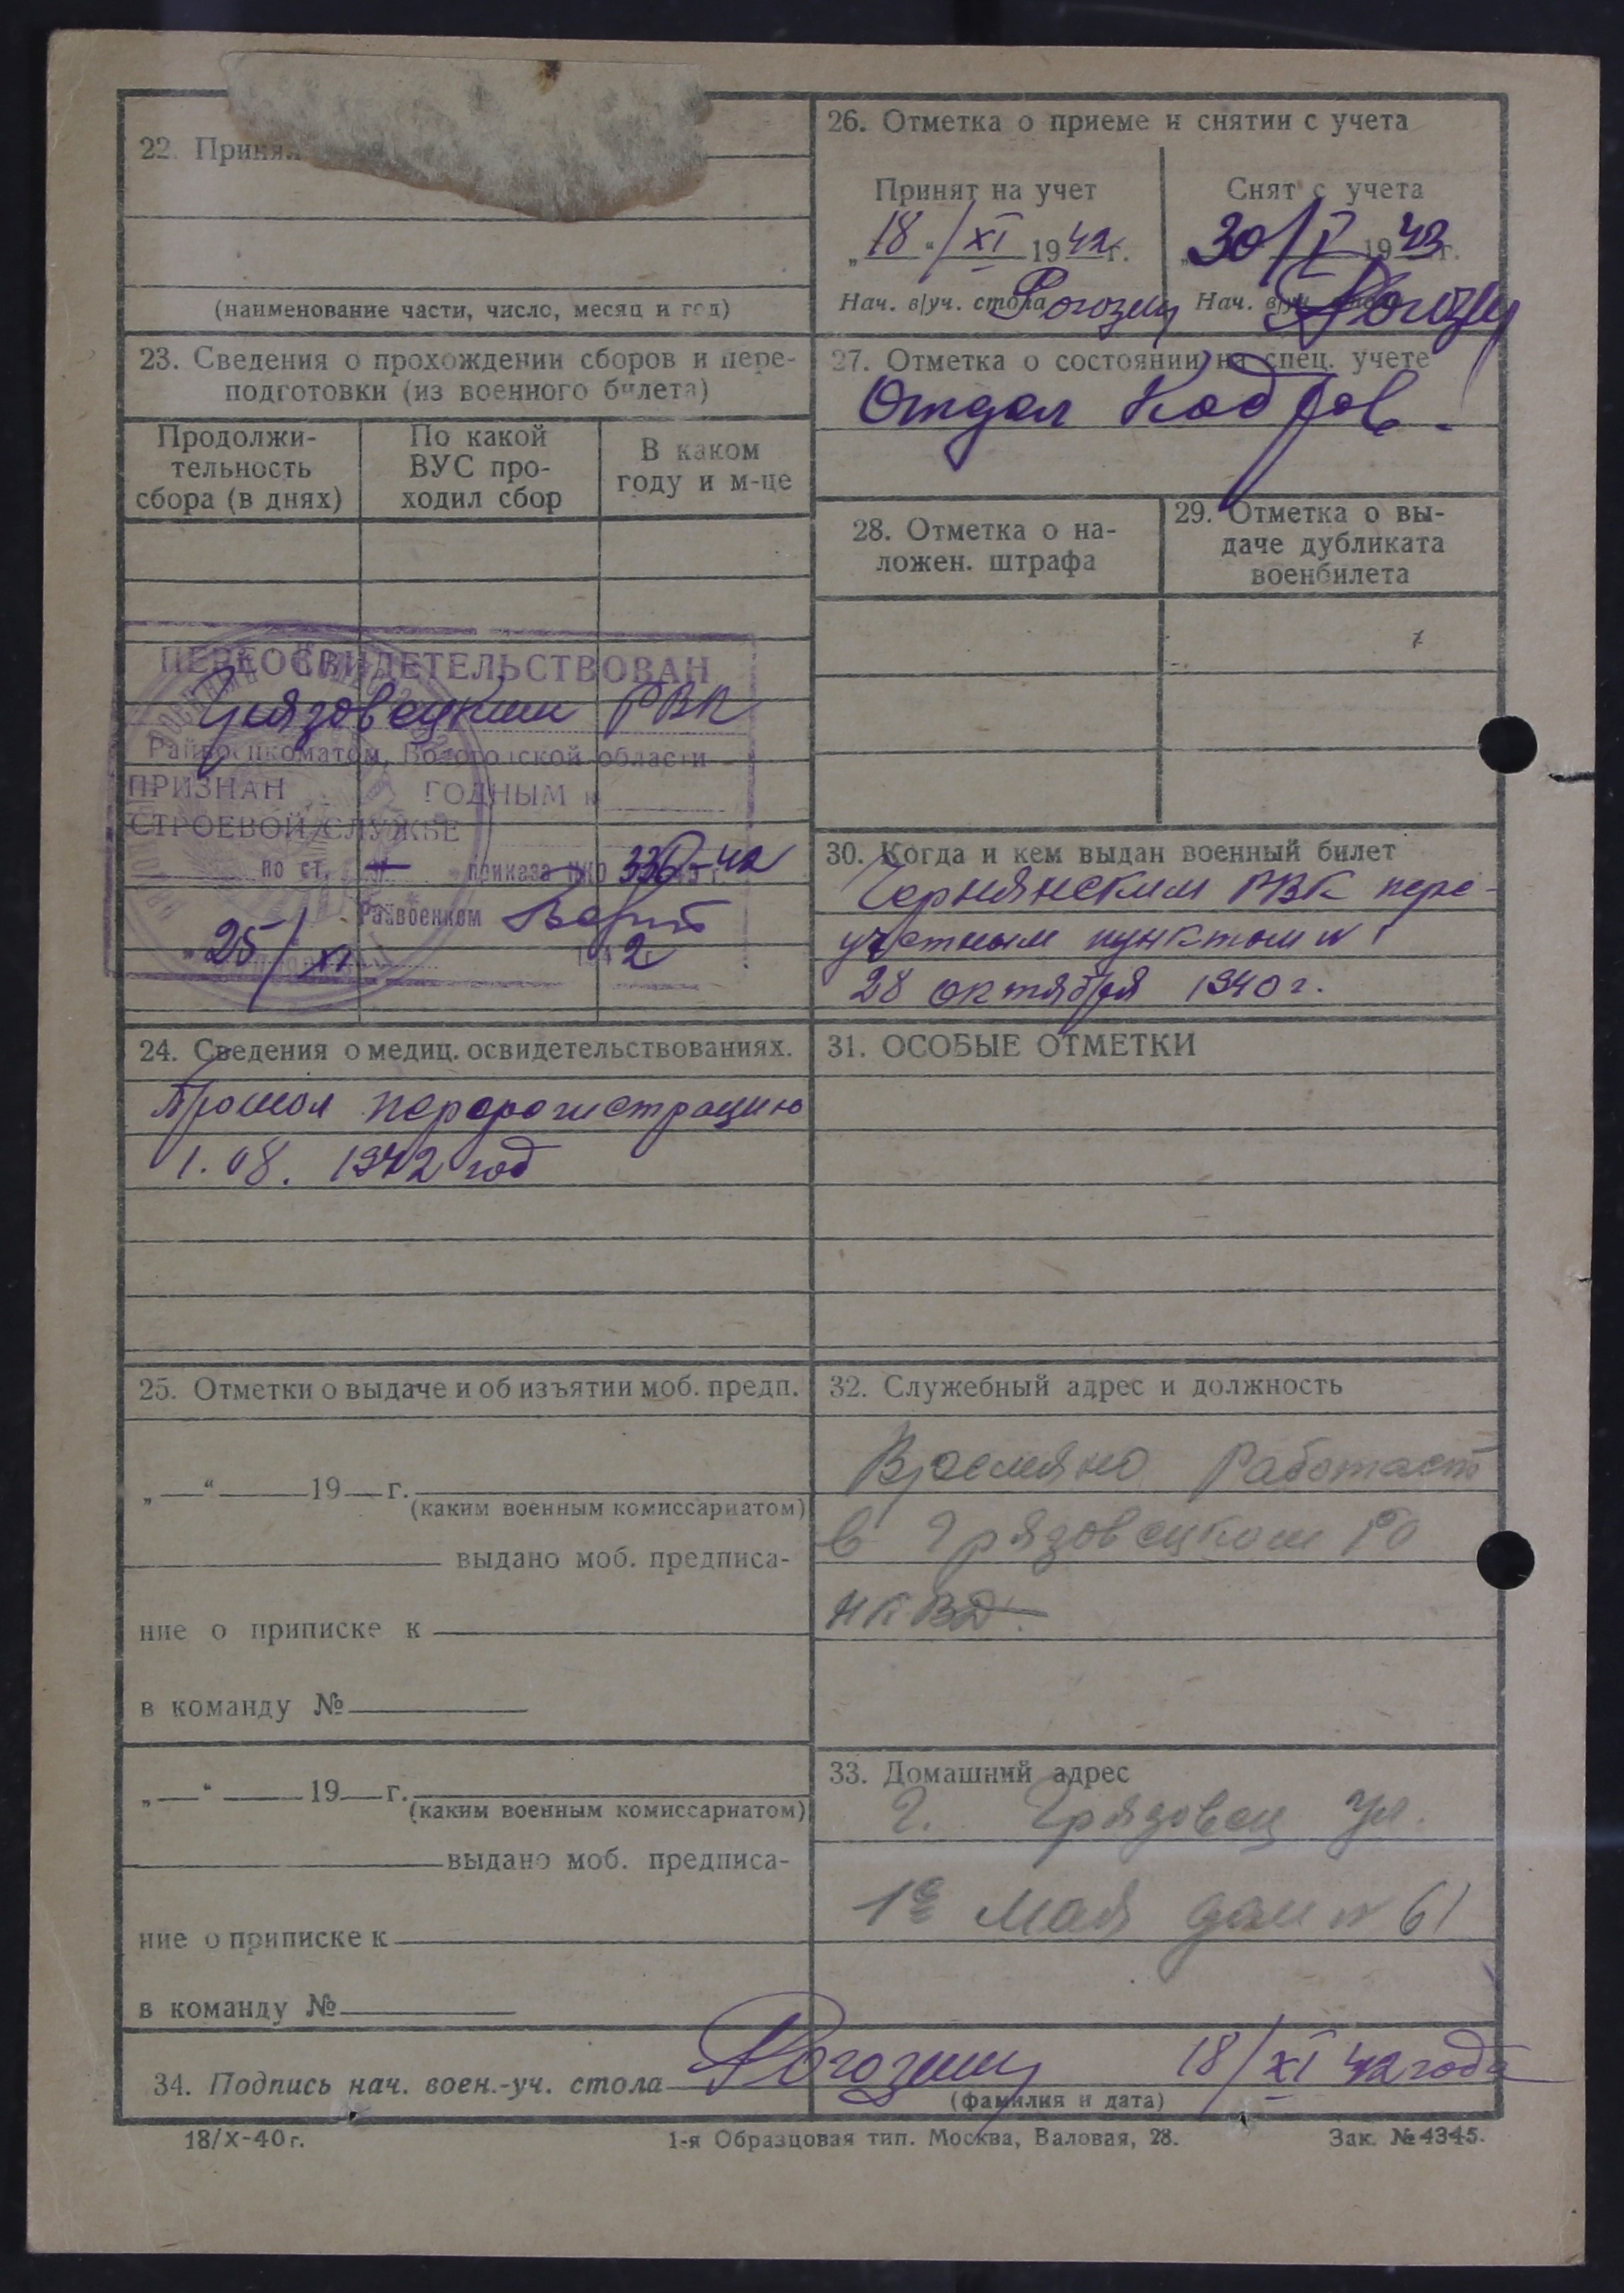 22. Принят
(наименование части, число, месяц и год)
23. Сведения о прохождении сборов и пере-
подготовки (из военного билета)
Продолжи-
тельность
сбора (в днях)
По какой
ВУС про-
ходил сбор
В каком
году и м-це
ПЕРЕОСВИДЕТЕЛЬСТВОВАН
Грязовецким РВК
Райвоенкоматом, Вологодской области
ПРИЗНАН ГОДНЫМ к
СТРОЕВОЙ СЛУЖБЕ
по ст. — приказа НКО 336-42
Райвоенком
„25/XI 1942
24. Сведения о медиц. освидетельствованиях.
Прошел перерегистрацию
1.08. 1942 год
25. Отметки о выдаче и об изъятии моб. предп.
„—“ —19—г.
(каким военным комиссариатом)
выдано моб. предписа-
ние о приписке к
в команду №
„—“ —19—г.
(каким военным комиссариатом)
выдано моб. предписа-
ние о приписке к
в команду №
26. Отметка о приеме и снятии с учета
Принят на учет
„18“/XI 1942г.
Нач. в/уч. стола Рогозин
Снят с учета
„30/I 1943г.
Нач. в/уч. Рогозин
27. Отметка о состоянии на спец. учете
Отдел Кадров.
28. Отметка о на-
ложен. штрафа
29. Отметка о вы-
даче дубликата
военбилета
30. Когда и кем выдан военный билет
Чернянским РВК пере-
учетным пунктом № 1
28 октября 1940 г.
31. ОСОБЫЕ ОТМЕТКИ
32. Служебный адрес и должность
Времянно Работает
в Грязовецком РО
НКВД.
33. Домашний адрес
Г. Грязовец ул.
1е Мая дом № 61
34. Подпись нач. воен.-уч. стола Рогозин 18/XI 42 года
(фамилия и дата)
18/X-40 г.
1-я Образцовая тип. Москва, Валовая, 28.
Зак. № 4345.